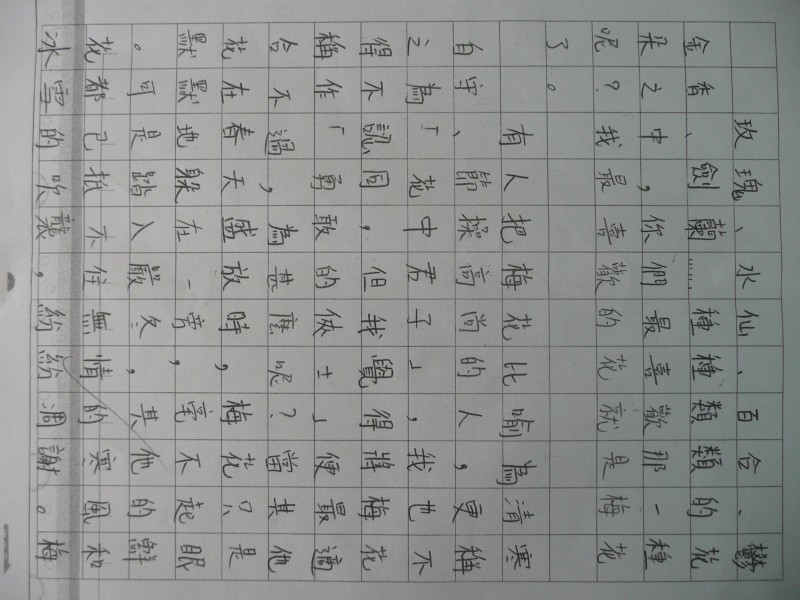 玫瑰、水仙、百合、鬱
金香、劍蘭……種種類類的花
朵之中，你們最喜歡那一種
呢？我最喜歡的花就是梅花
了。
有人把梅花比喻為清寒
自守、節操高尚的人，更稱
之為「花中君子」，我也不
得不認同，但我覺得將梅花
稱作「勇敢的俠士」便最適
合不過，為甚麼呢？當其他
花在春天盛放時，梅花只是
默默地躲在一旁，毫不起眼
。可是踏入嚴冬，其他的鮮
花都已抵不住無情的寒風和
冰雪的吹襲，紛紛凋謝。梅